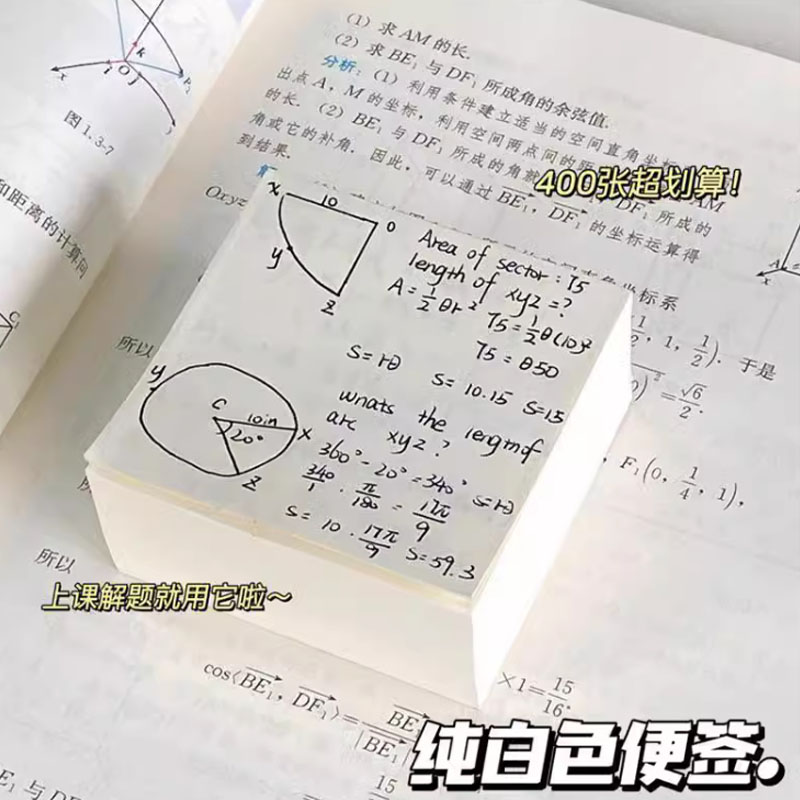 (1) 求 AM 的长.
(2) 求 BE₁ 与 DF₁ 所成角的余弦值.
分析: (1) 利用条件建立适当的空间直角坐标
出点 A, M 的坐标, 利用空间两点间的距
的长. (2) BE₁ 与 DF₁ 所成的角就
DF₁ 所成的
角或它的补角. 因此, 可以通过 BE₁, DF₁ 的坐标运算得
到结果.
图 1.3-7
400张超划算!
和距离的计算问
Oxyz
坐标系
X 10 O
y
Z
Area of sector: 75
length of xyz = ?
A = 1/2 θr²
75 = 1/2 θ(10)²
75 = θ50
S = rθ S = 10.15 S=15
whats the length of
arc xyz?
360° - 20° = 340° S=rθ
340/1 · π/180 = 17π/9
S = 10 · 17π/9 S=59.3
y
C 10in X
20°
Z
1/2, 1, 1/2). 于是
= √6/2.
F₁(0, 1/4, 1),
所以
所以
上课解题就用它啦~
cos⟨BE₁, DF₁⟩ = BE
|BE₁|
×1 = 15/16.
15
E₁ 与 DF
纯白色便签.